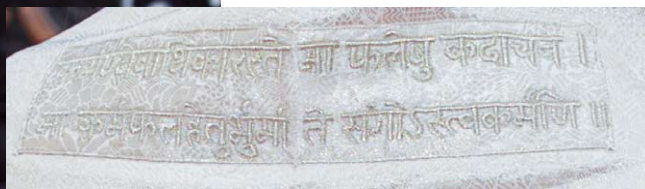 कर्मण्येवाधिकारस्ते मा फलेषु कदाचन ।
मा कर्मफलहेतुर्भुर्मा ते संगोऽस्त्वकर्मणि ॥